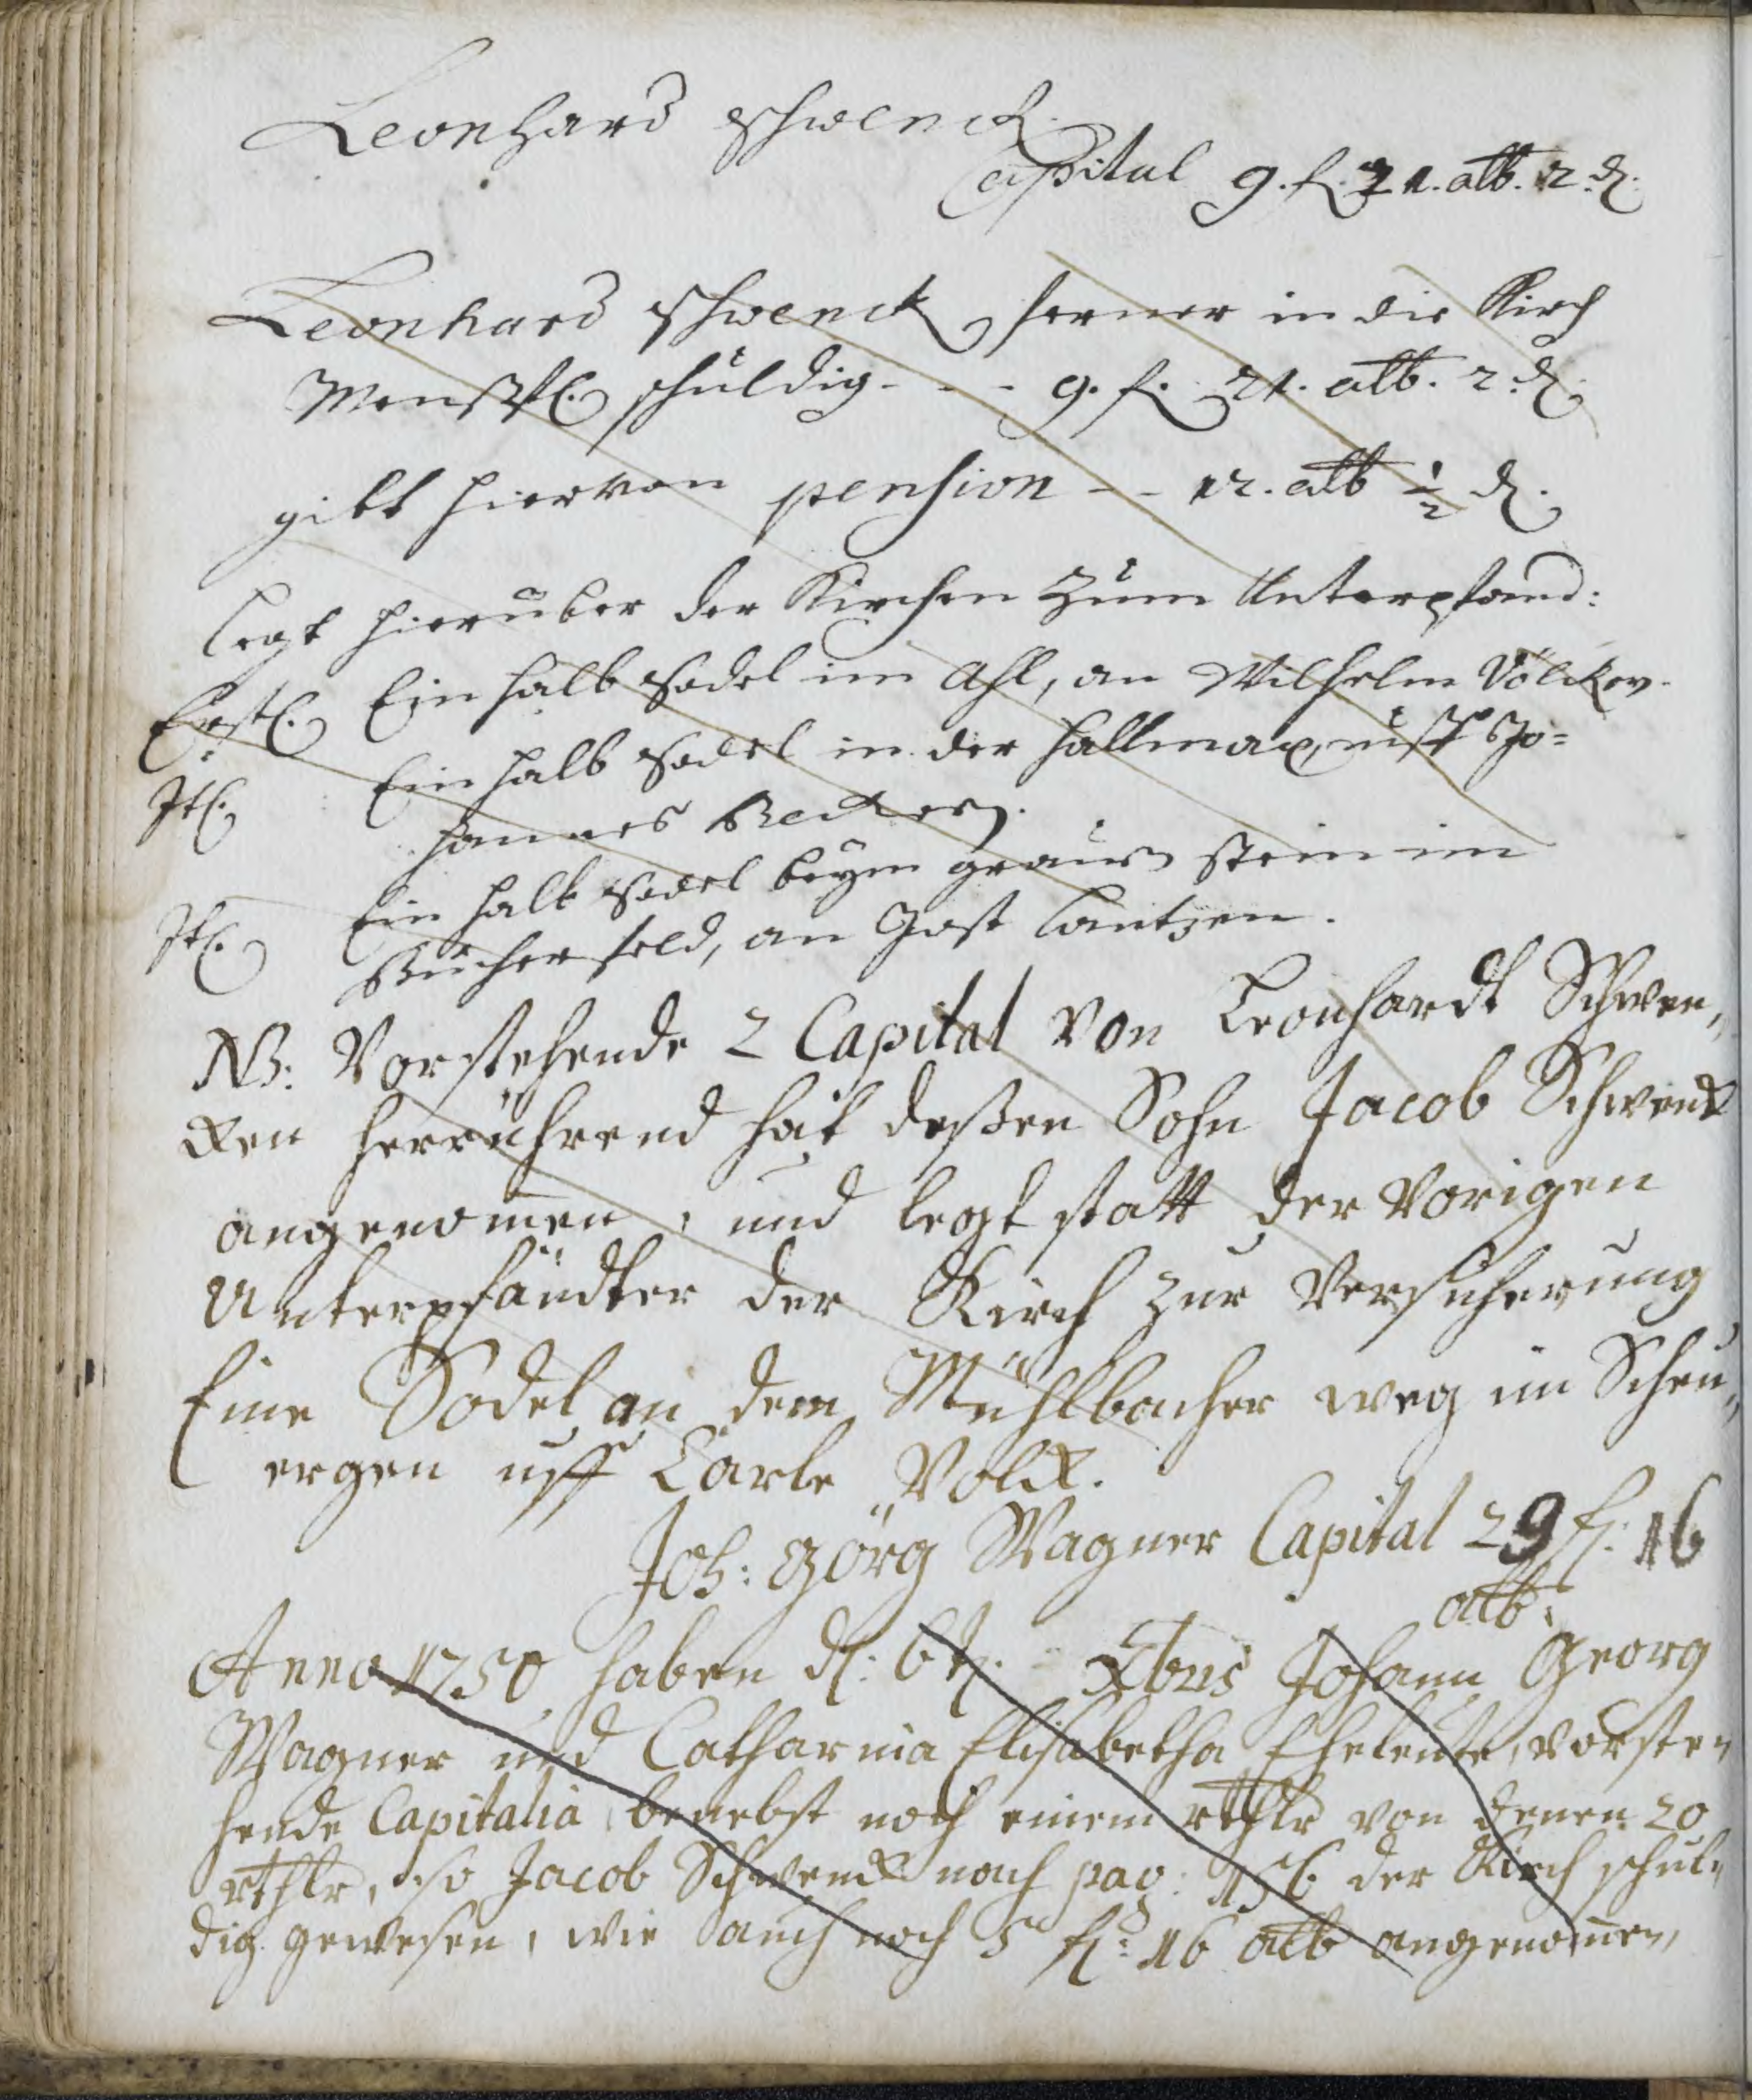 Leonhard Schwenck
Capital 9. f. 21. alb. 2 d.
Leonhard Schwenck ferner in die Kirch
schuldig - - - 9. f. 21. alb. 2 d.
gibt hiervon pension - - 12. alb ½ d.
legt hierüber der Kirchen zum Unterpfand:
Erstl. Ein halb Sodel im Ahl, an Wilhelm Völcker.
Itl. Ein halb Sodel in der uff Jo=
hannes Beckern.
Itl. Ein halb Sodel beym grauen stein im
Bücherfeld, an Jost Lantzen.
NB. Vorstehende 2 Capital von Leonhardt Schwen,,
cken herrührend hat deßen Sohn Jacob Schwenck
angenom̄en, und legt statt der vorigen
Unterpfändter der Kirch zur Versicherung
Eine Sodel an dem Mühlbacher weg im Scheu,,
ergen uff Carle Volck.
Joh: Görg Wagner Capital 29 f. 16
alb.
Anno 1750 haben d. 6t. Xbris Johann Georg
Wagner und Catharina Elisabetha Eheleute, vorste,,
hende Capitalia benebst noch einem rthlr von denen 20
rthlr, so Jacob Schwenck nach pag: 156 der Kirch schul,,
dig gewesen, wie auch noch 5 f. 16 alb angenom̄en,